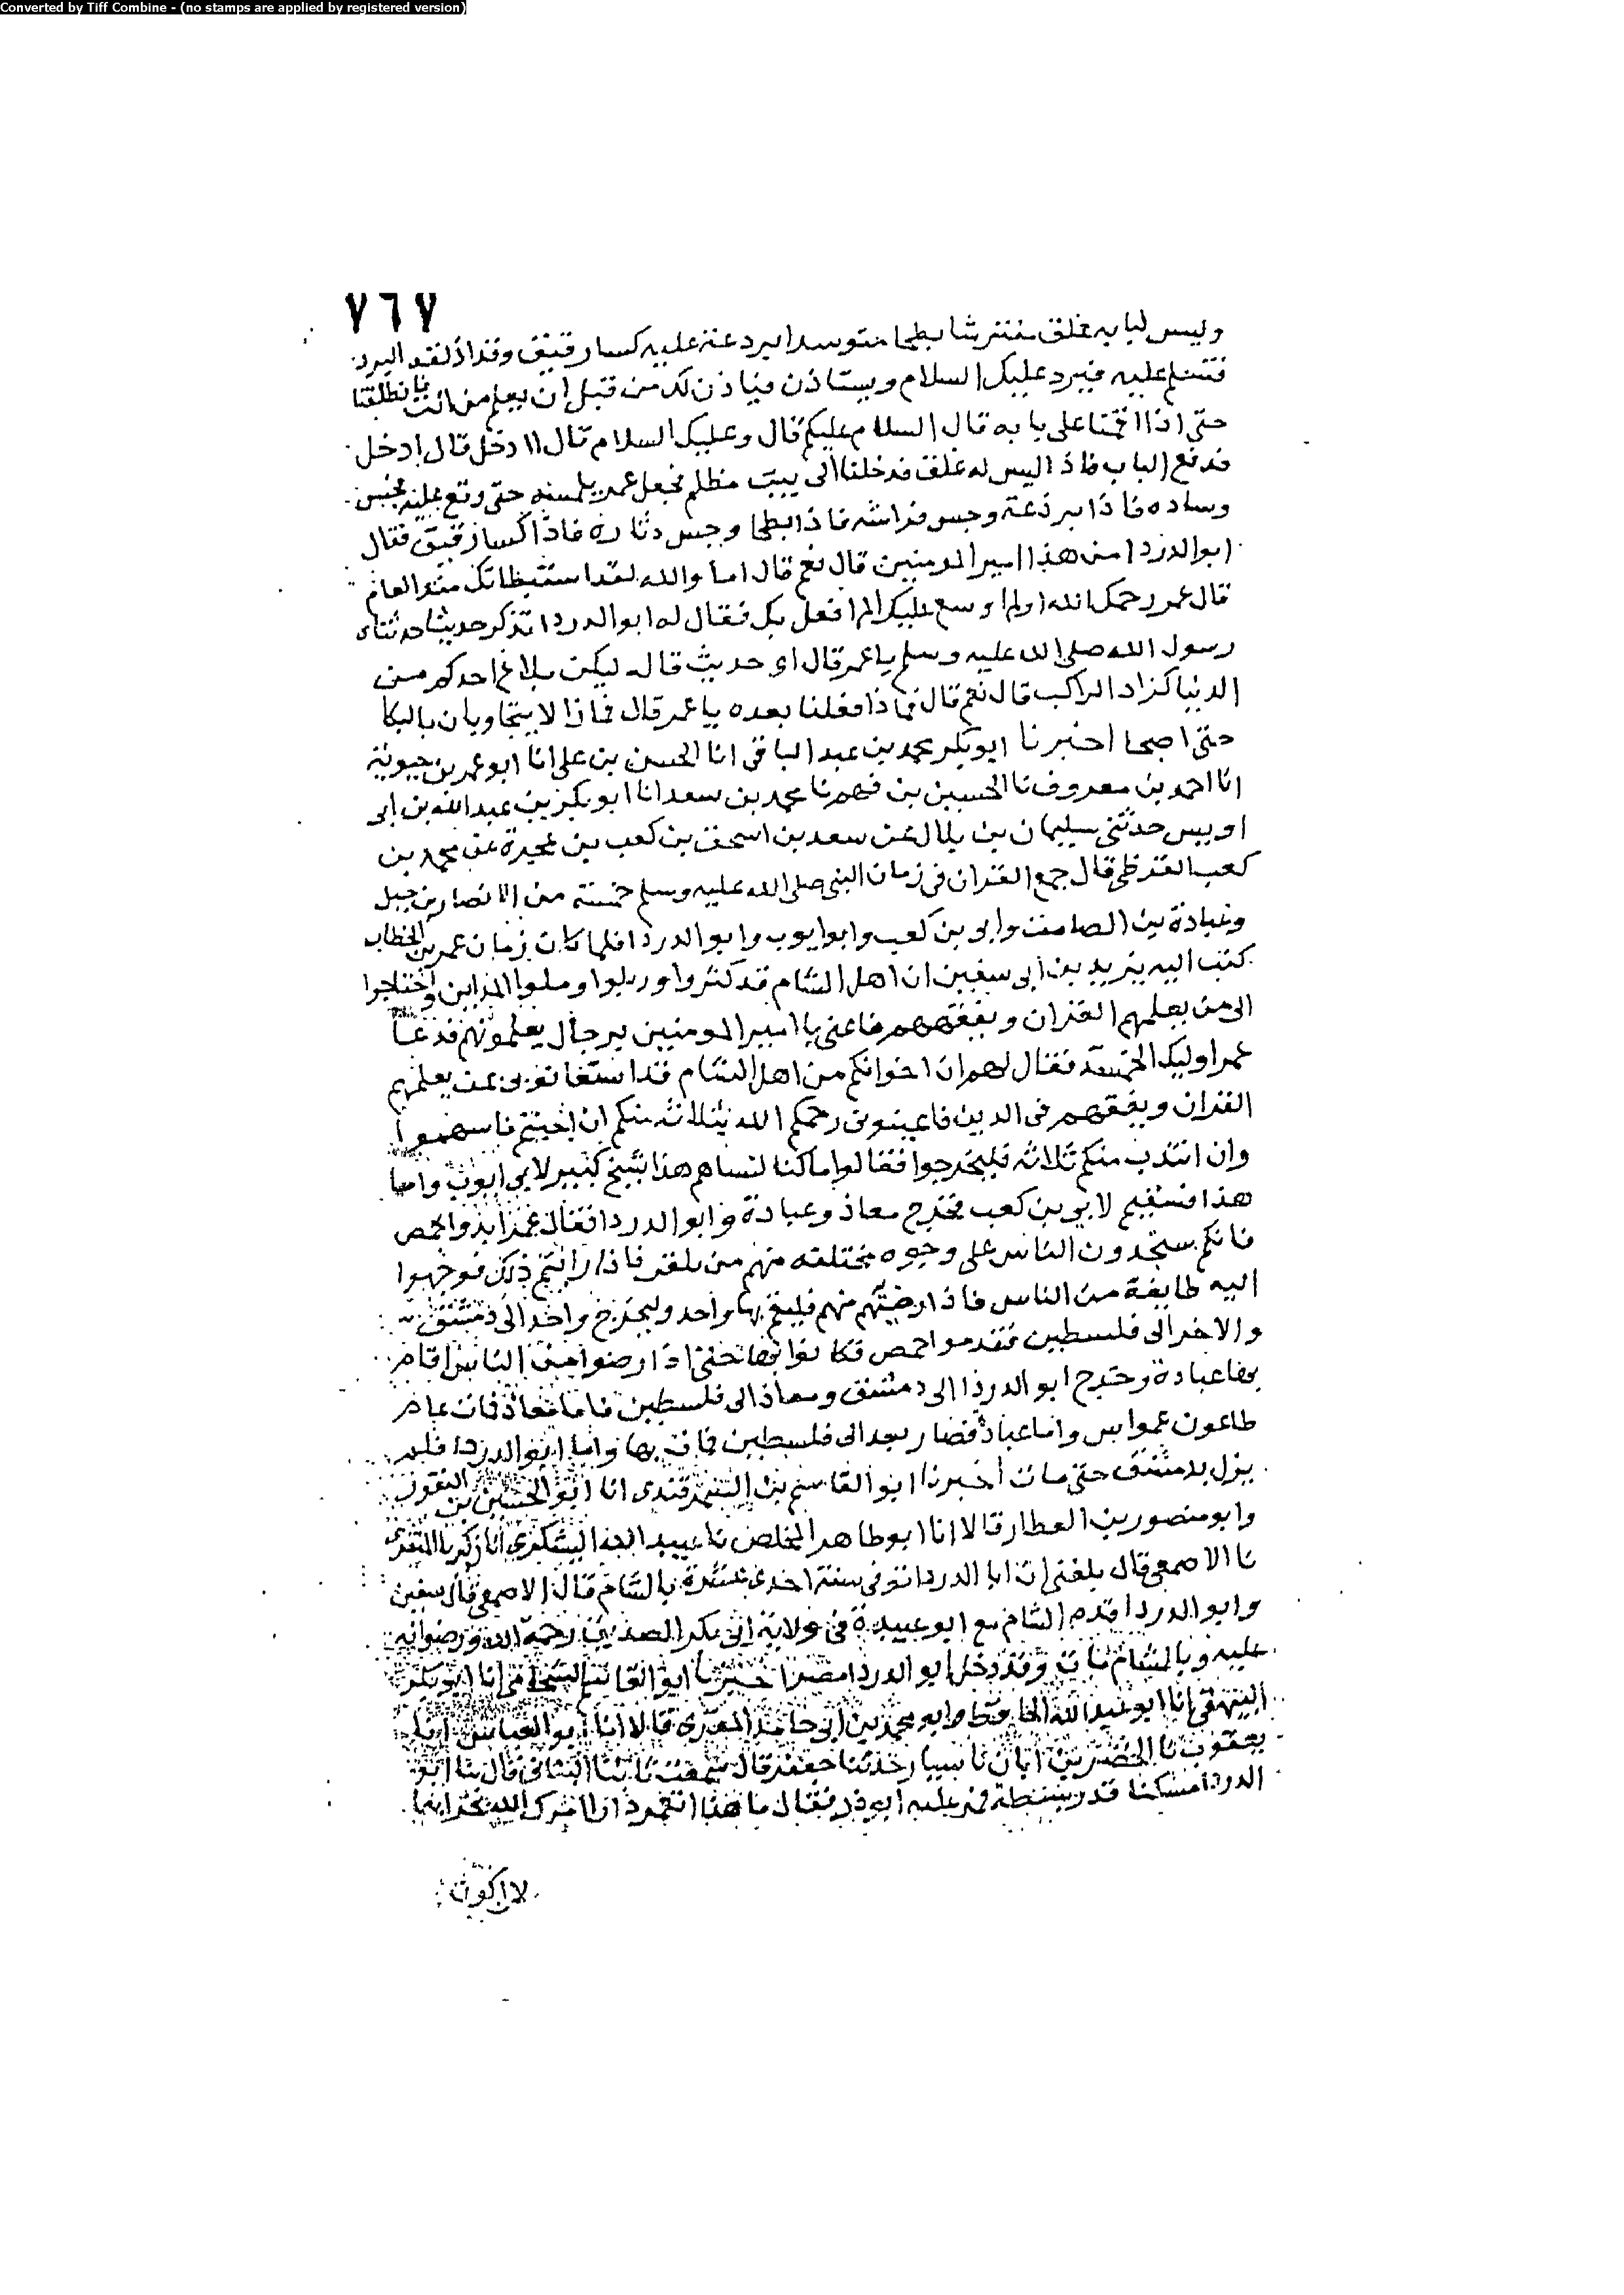 Converted by Tiff Combine - (no stamps are applied by registered version)
٧٦٧
وليس لبابه غلق مفترشا بطحا متوسدا بردعة عليه كسا رقيق وقد اذلقه البرد
فتسلم عليه فيرد عليك السلام وبستاذن فياذن لك من قبل ان يعلم من انت فانطلقنا
حتى اذا اقمنا على بابه قال السلام عليكم قال وعليك السلام قال اادخل قال ادخل
فدفع الباب فاذا ليس له غلق فدخلنا الى بيت مظلم فجعل عمر يلمسه حتى وقع عليه فجس
وساده فاذا برذعة وجس فراشه فاذا بطحا وجس دثاره فاذا كسا رقيق فقال
ابو الدردا من هذا امير المومنين قال نعم قال اما والله لقد استبطاتك منذ العام
قال عمر رحمك الله اولم اوسع عليك الم افعل بك فقال له ابو الدردا تذكر حديثا حدثناه
رسول الله صلى الله عليه وسلم يا عمر قال اى حديث قال ليكن بلاغ احدكم من
الدنيا كزاد الراكب قال نعم قال فماذا فعلنا بعده يا عمر قال فما زالا يتجاوبان بالبكا
حتى اصبحا اخبرنا ابو بكر محمد بن عبد الباقى انا الحسن بن على انا ابو عمر بن حيوية
انا احمد بن معروف نا الحسين بن فهم نا محمد بن سعد انا ابو بكر بن عبد الله بن ابى
اويس حدثنى سليمان بن بلال عن سعد بن اسحق بن كعب بن عجرة عن محمد بن
كعب القرظى قال جمع القران فى زمان النبى صلى الله عليه وسلم خمسة من الانصار بن جبل
وعبادة بن الصامت وابى بن كعب وابو ايوب وابو الدردا فلما كان زمان عمر بن الخطاب
كتب اليه يزيد بن ابى سفين ان اهل الشام قد كثروا وربلوا وملوا المداين واحتاجوا
الى من يعلمهم القران ويفقههم فاعنى يا امير المومنين برجال يعلمونهم فدعا
عمر اوليك الخمسة فقال لهم ان اخوانكم من اهل الشام قد استعانونى بمن يعلمهم
القران ويفقههم فى الدين فاعينونى رحمكم الله بثلاثة منكم ان احببتم فاستهموا
وان انتدب منكم ثلاثه فليخرجوا فقالوا ما كنا لنساهم هذا شيخ كبير لابى ايوب واما
هذا فسقيم لابى بن كعب فخرج معاذ وعبادة وابو الدردا فقال عمر ابدوا بحمص
فانكم ستجدون الناس على وجوه مختلفه منهم من يلقن فاذا رايتم ذلك فوجهوا
اليه طايفة من الناس فاذا رضيتم منهم فليقم بها واحد وليخرج واحد الى دمشق
والاخر الى فلسطين فقدموا حمص فكانوا بها حتى اذا رضوا من الناس اقام
بها عبادة وخرج ابو الدردا الى دمشق ومعاذ الى فلسطين فاما معاذ فمات عام
طاعون عمواس واما عبادة فصار بعد الى فلسطين فمات بها واما ابو الدردا فلم
يزل بدمشق حتى مات اخبرنا ابو القاسم بن السمرقندى انا ابو الحسين بن النقور
وابو منصور بن العطار قالا انا ابو طاهر المخلص نا عبيد الله السكرى نا زكريا المنقرى
نا الاصمعى قال بلغنى ان ابا الدردا توفى سنة احدى عشرة بالشام قال الاصمعى قال سفين
وابو الدردا قدم الشام مع ابو عبيدة فى ولاية ابى بكر الصديق رحمة الله ورضوانه
عليه وبالشام مات وقد دخل ابو الدردا مصر اخبرنا ابو القاسم الشحامى انا ابو بكر
البيهقى انا ابو عبد الله الحافظ وابو محمد بن ابى حامد المقرى قالا انا ابو العباس
يعقوب نا الخضر بن ابان نا سيار حدثنا جعفر قال سمعت ثابتا البنانى قال بنا ابو
الدردا مسكنا قدر بسطة فمر عليه ابو ذر فقال ما هذا اتعمر دارا امرك الله بخرابها
لان اكون